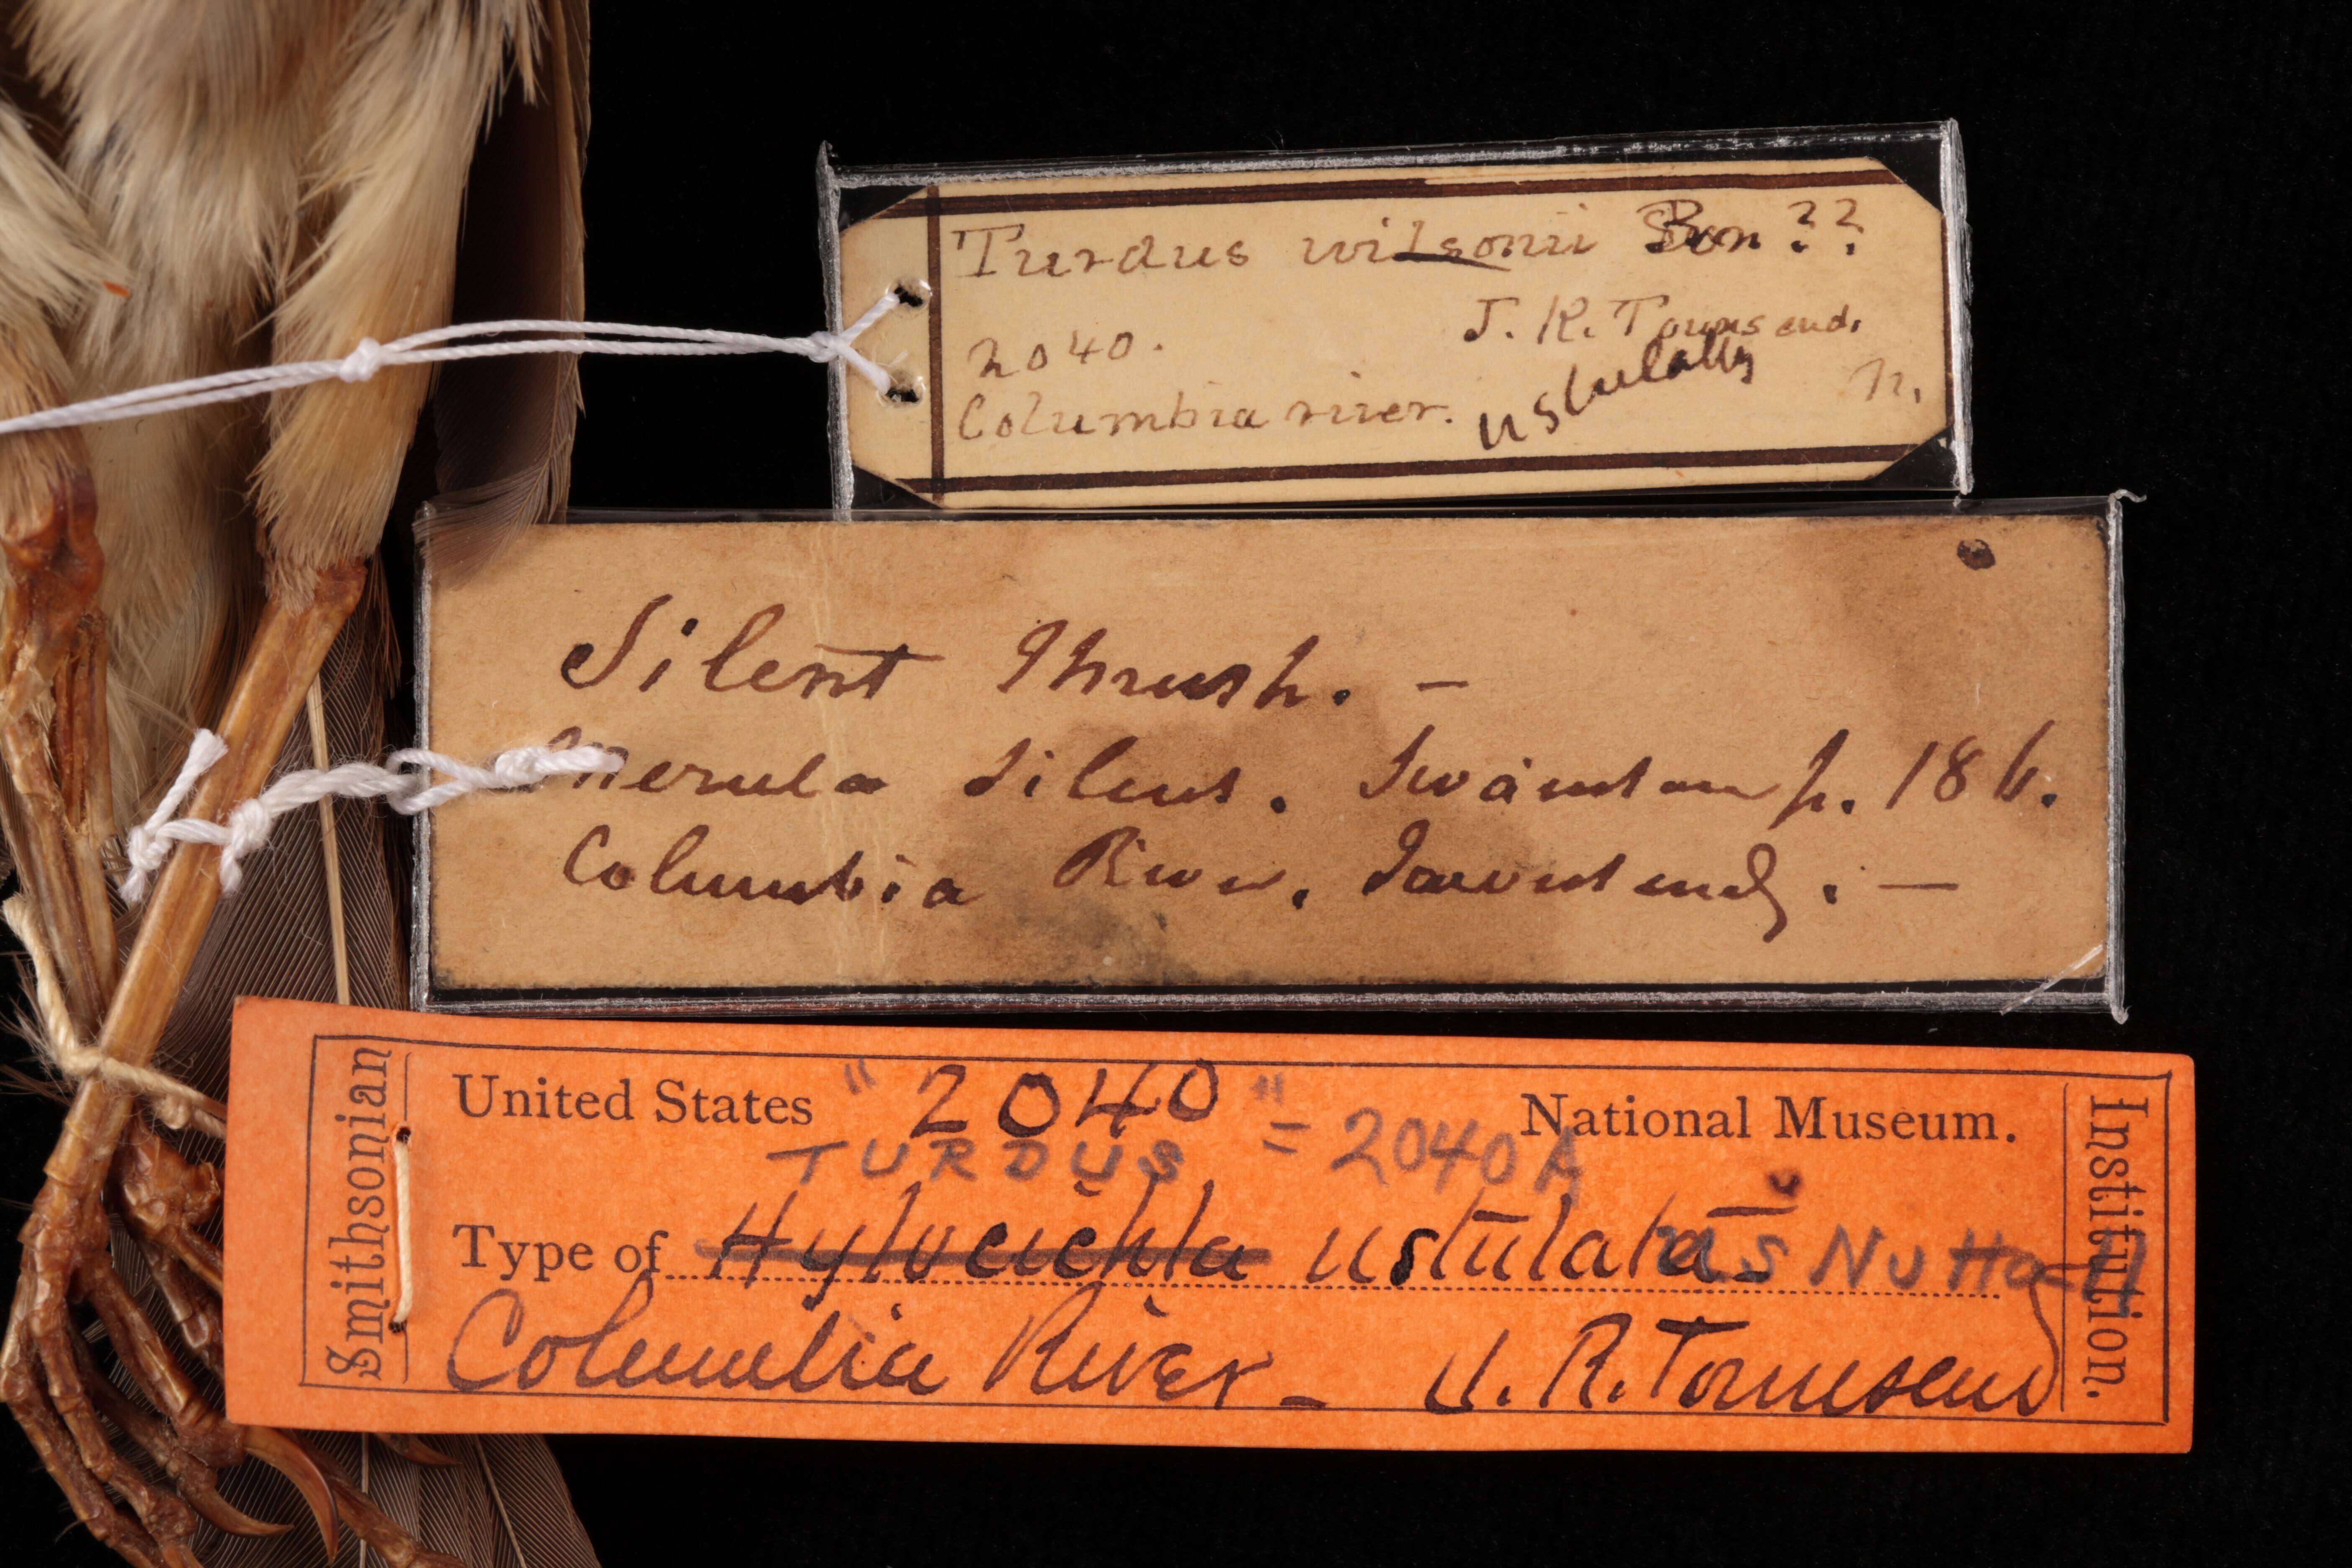 Turdus wilsonii Bon??
J. K. Townsend.
2040.
ustulatus
n.
Columbia river.
Silent Thrush. —
Merula Silens. Swainson p. 186.
Columbia River. Townsend. —
Smithsonian
United States "2040" National Museum.
TURDUS = 2040A
Type of Hylocichla ustulata us Nuttall
Columbia River - J. K. Townsend
Institution.